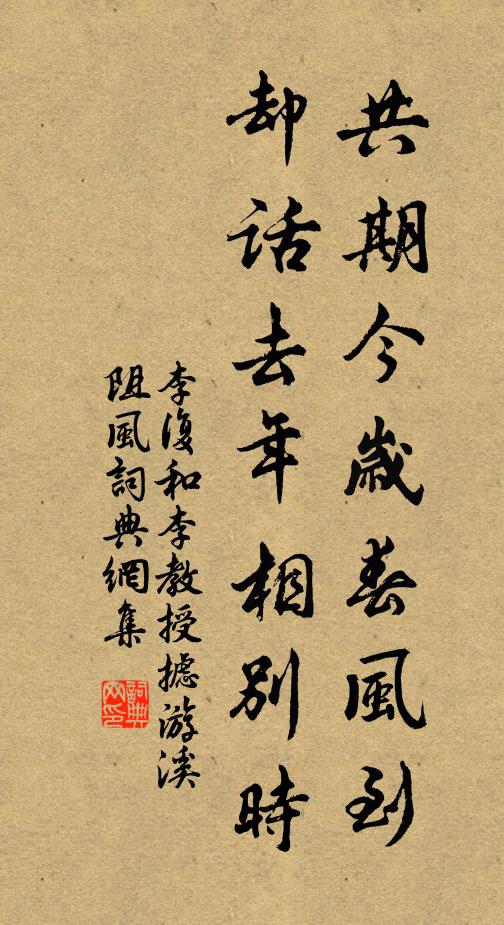 共期今歲春風到
却話去年相別時
李復和李教授摅游溪
阻風詞典網集
詞典
网印